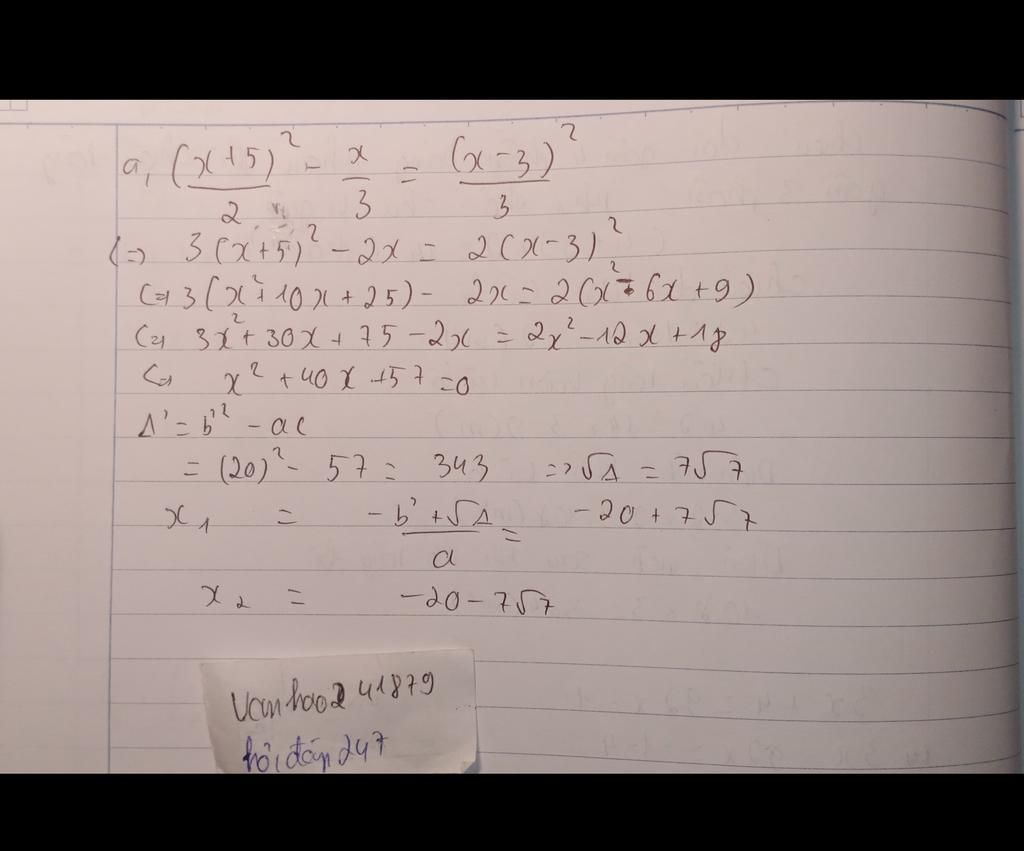 a, (x+5)²/2 - x/3 = (x-3)²/3
(=) 3(x+5)² - 2x = 2(x-3)²
(=) 3(x²+10x+25) - 2x = 2(x²-6x+9)
(=) 3x²+30x+75-2x = 2x²-12x+18
(=) x²+40x+57=0
Δ' = b'² - ac
= (20)² - 57 = 343 => √Δ = 7√7
x₁ = (-b'+√Δ)/a = -20+7√7
x₂ = -20-7√7
Vanhao241879
hỏi đáp 247